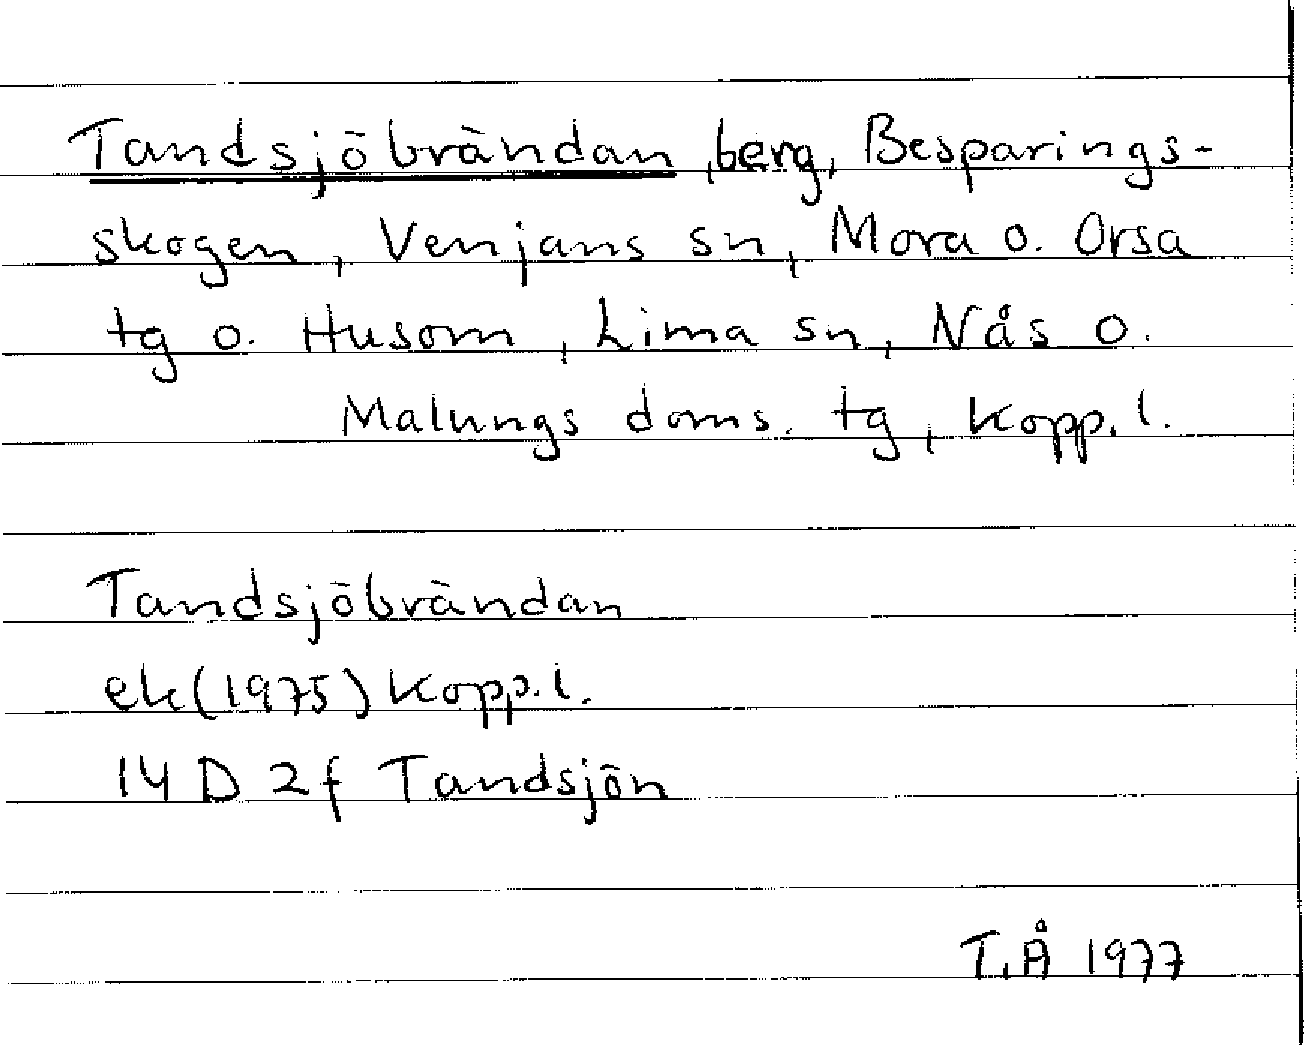 Tandsjöbrändan, berg, Besparings-
skogen, Venjans sn, Mora o. Orsa
tg o. Husom, Lima sn, Nås o.
Malungs doms. tg, Kopp. l.
Tandsjöbrändan
ek (1975) Kopp. l.
14 D 2f Tandsjön
T.Å 1977